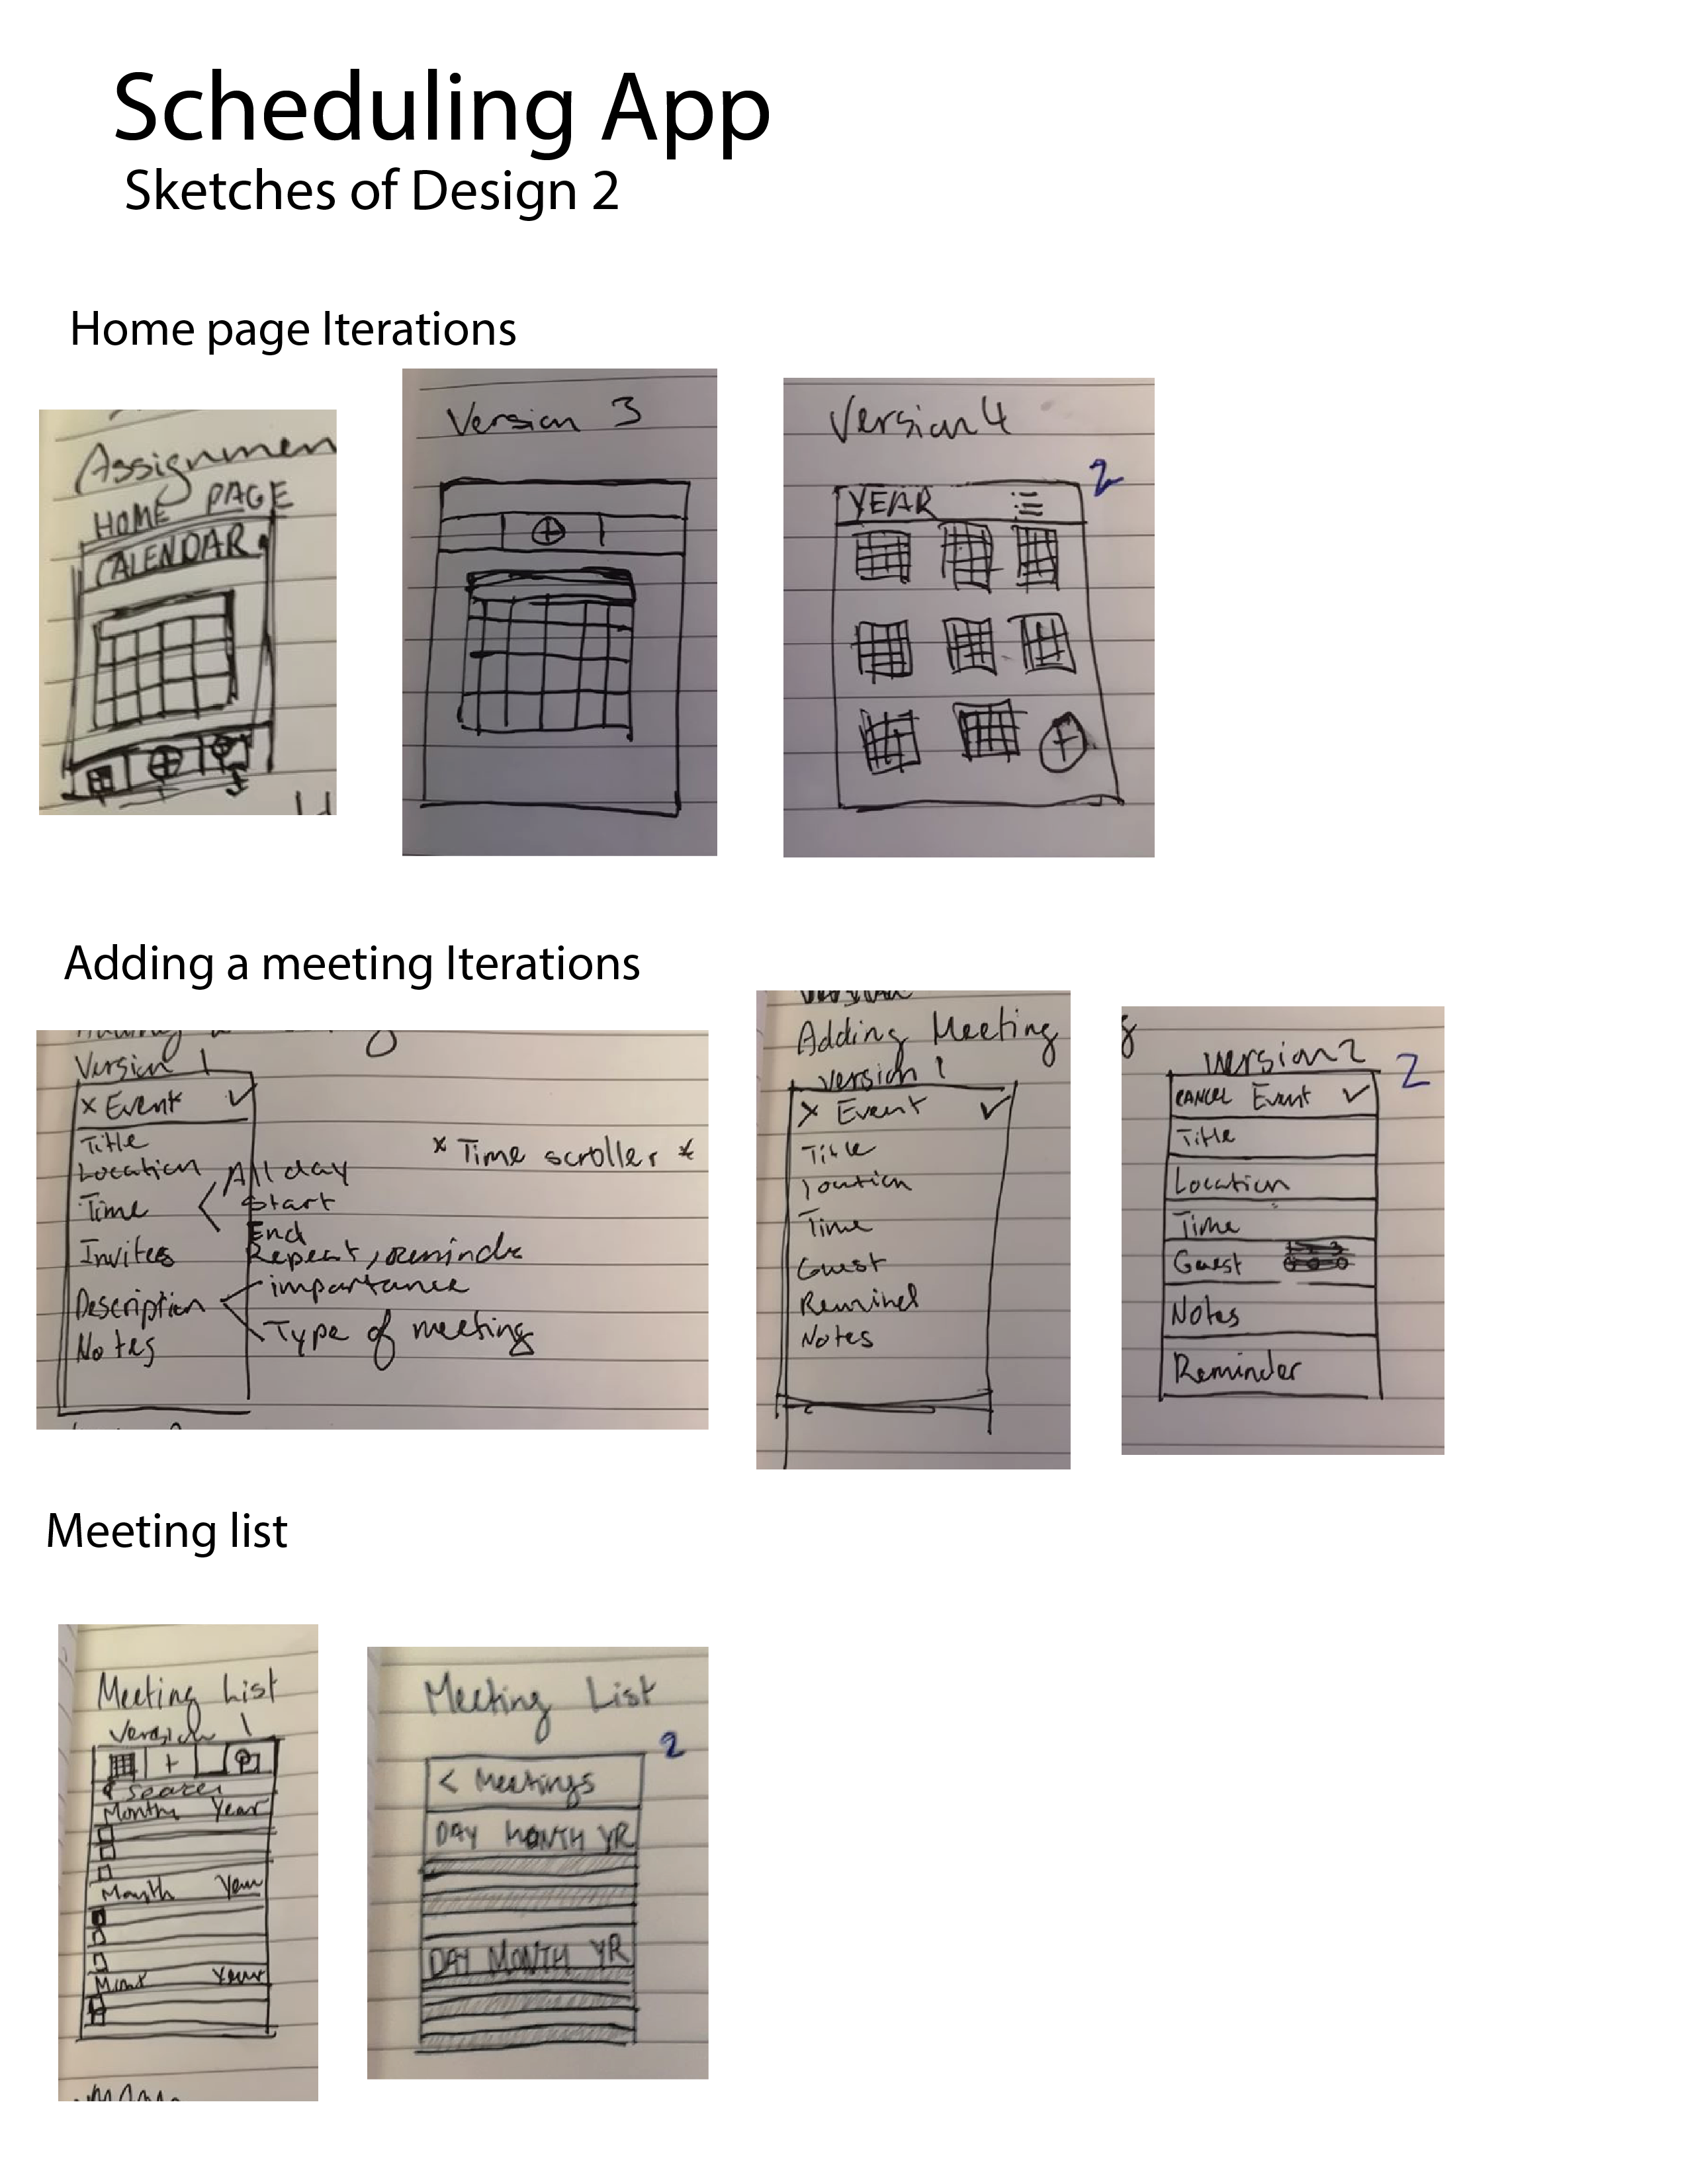 Scheduling App
Sketches of Design 2
Home page Iterations
Assignmen
HOME PAGE
CALENDAR
Version 3
Version 4
2
YEAR
Adding a meeting Iterations
Version 1
x Event ✓
Title
Location
Time
All day
Start
End
Invites
Repeat,
Description
importance
Type of meeting
Notes
* Time scroller *
Adding Meeting
version 1
x Event ✓
Title
Time
Guest
Notes
version 2
2
CANCEL Event ✓
Title
Location
Time
Guest
Notes
Reminder
Meeting list
Meeting List
Version 1
+
Month Year
Month
Meeting List
2
< Meetings
DAY MONTH YR
DAY MONTH YR